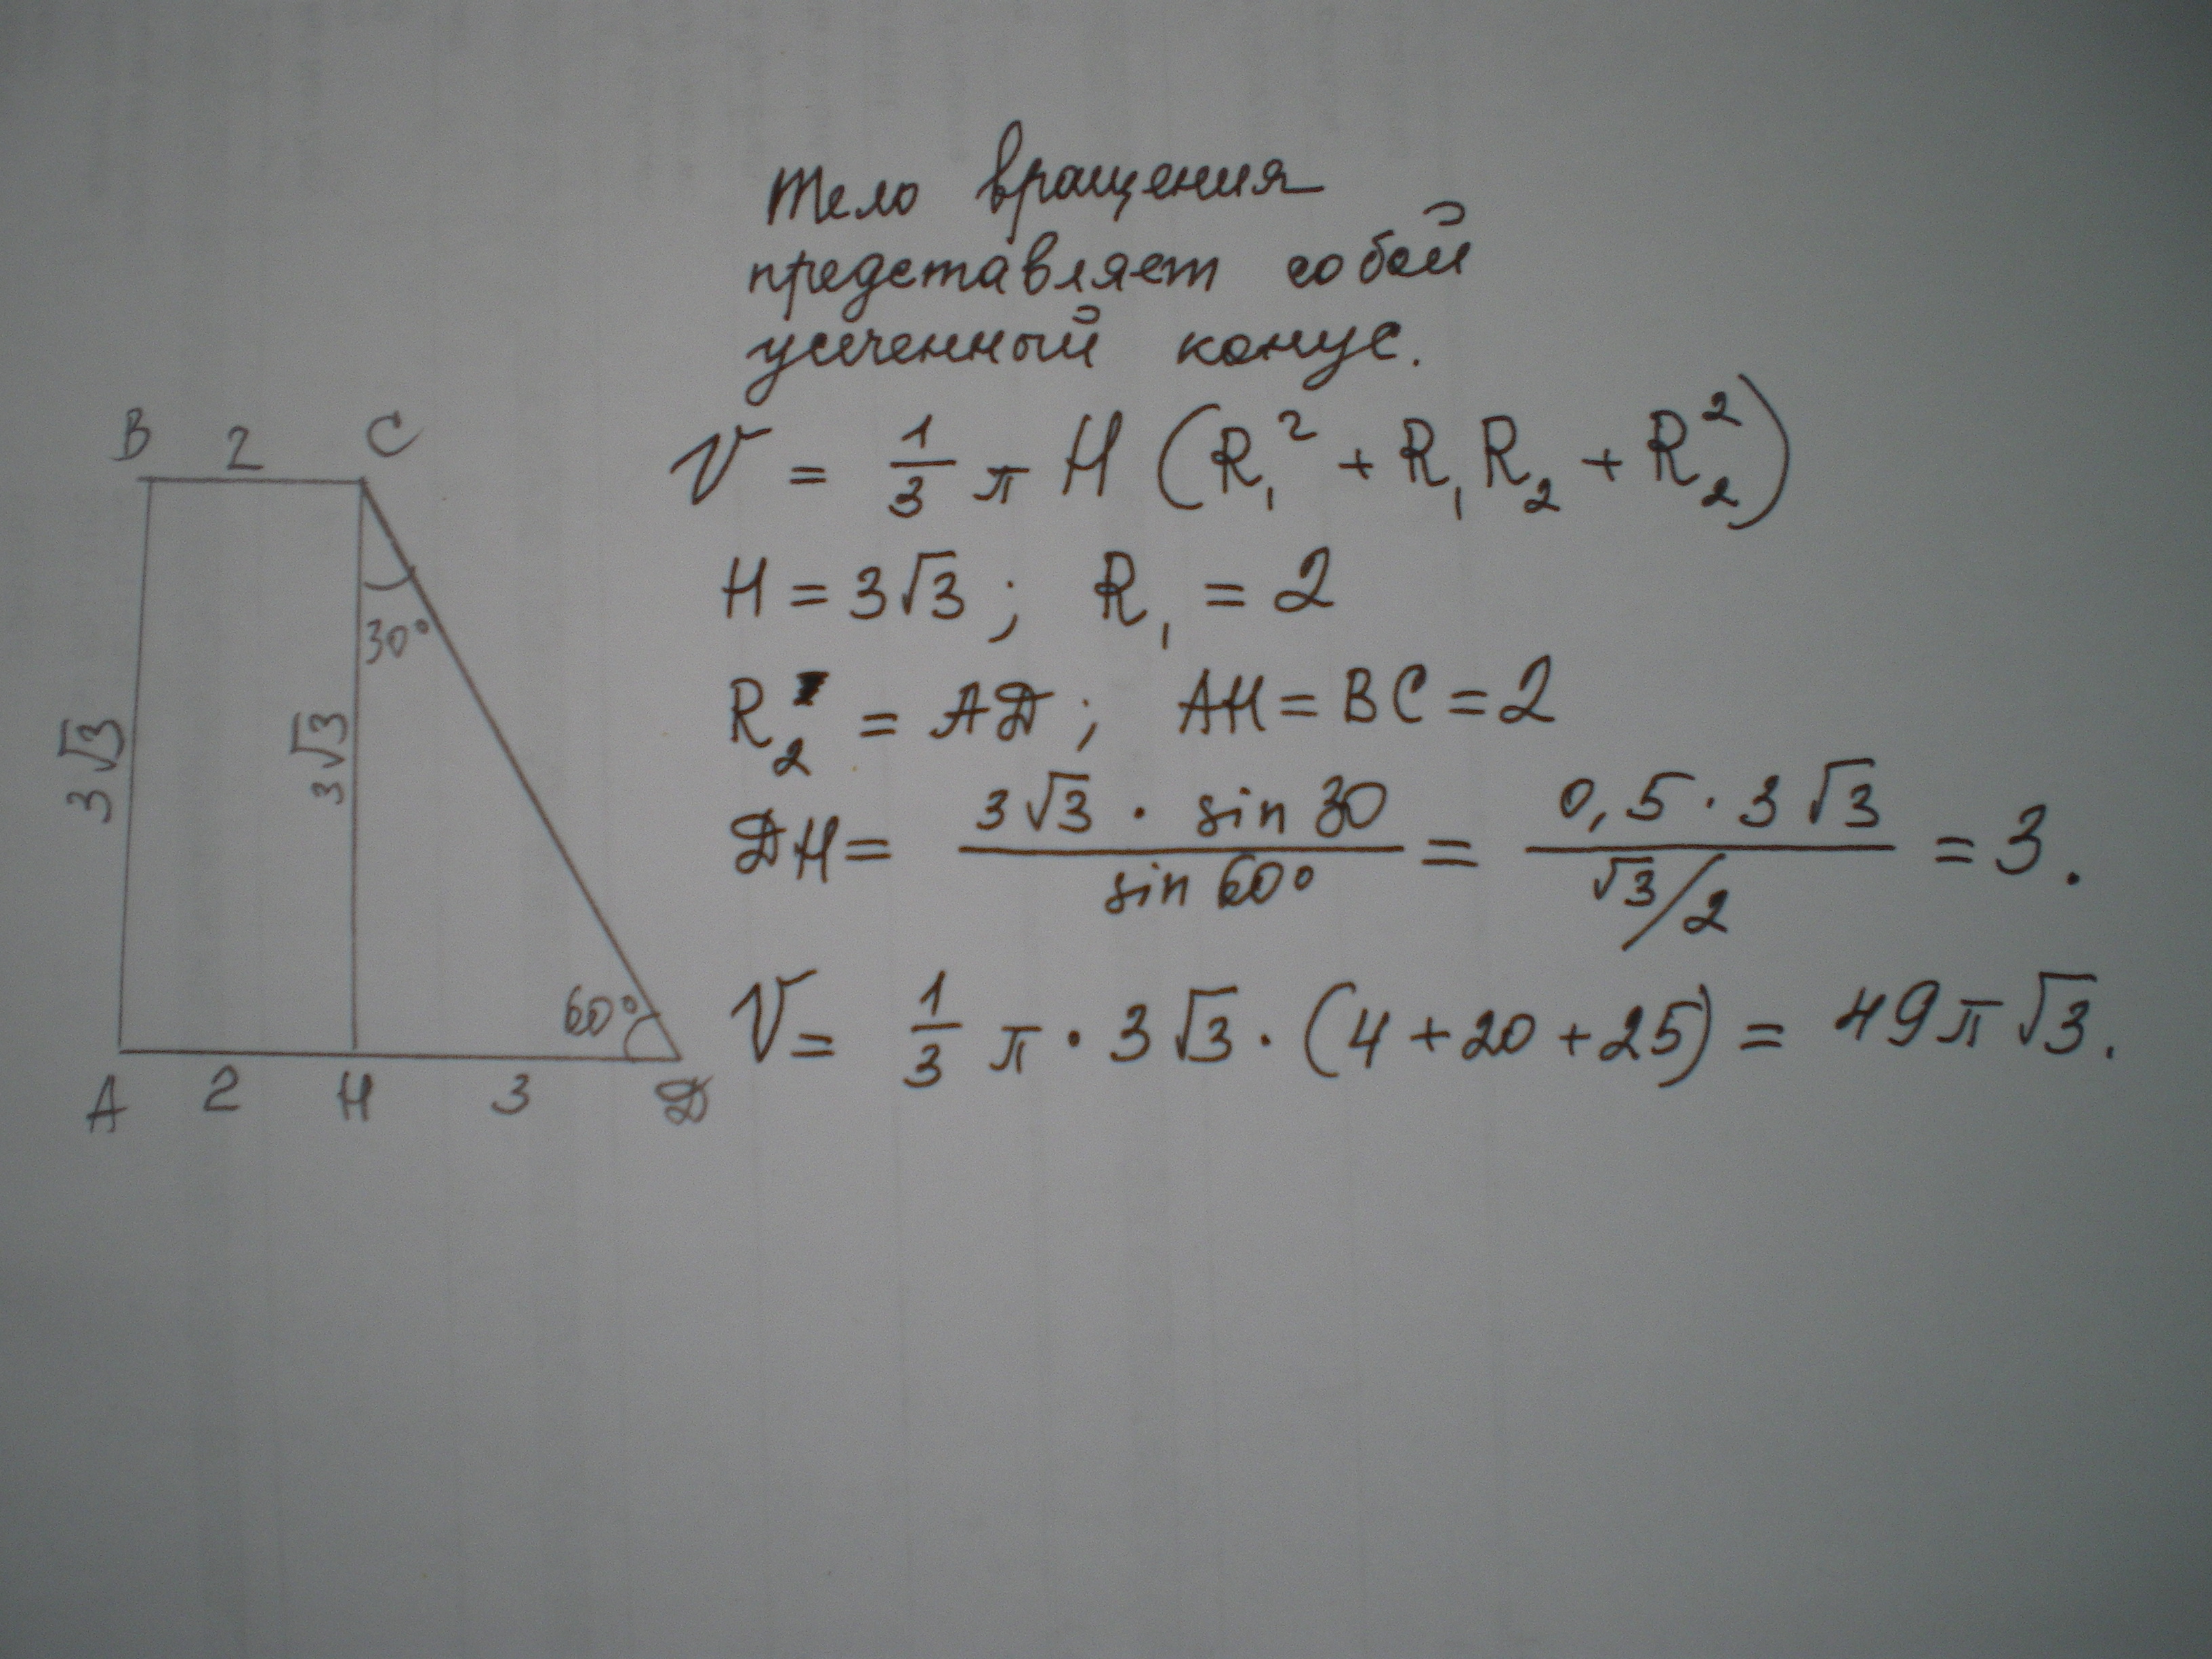 Тело вращения
представляет собой
усеченный конус.
V = 1/3 π H (R₁² + R₁R₂ + R₂²)
H = 3√3 ; R₁ = 2
R₂ = AД ; AH = BC = 2
ДH = 3√3 · sin 30 / sin 60° = 0,5 · 3√3 / √3/2 = 3.
V = 1/3 π · 3√3 · (4 + 20 + 25) = 49π√3.
B 2 C
30°
3√3 3√3
60°
A 2 H 3 Д